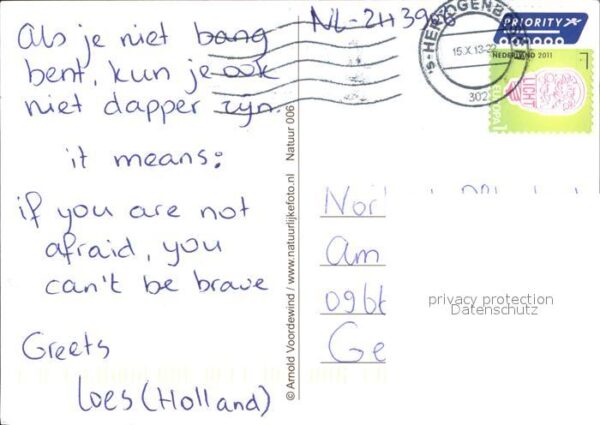 Als je niet bang
bent, kun je ook
niet dapper zijn.
it means:
if you are not
afraid, you
can't be brave
Greets
Loes (Holland)
© Arnold Voordewind / www.natuurlijkefoto.nl Natuur 006
'S-HERTOGENB
15.X.13-22
302
PRIORITY
NEDERLAND 2011
1
LICHT
EUROPA 1
Am
Ge
privacy protection
Datenschutz